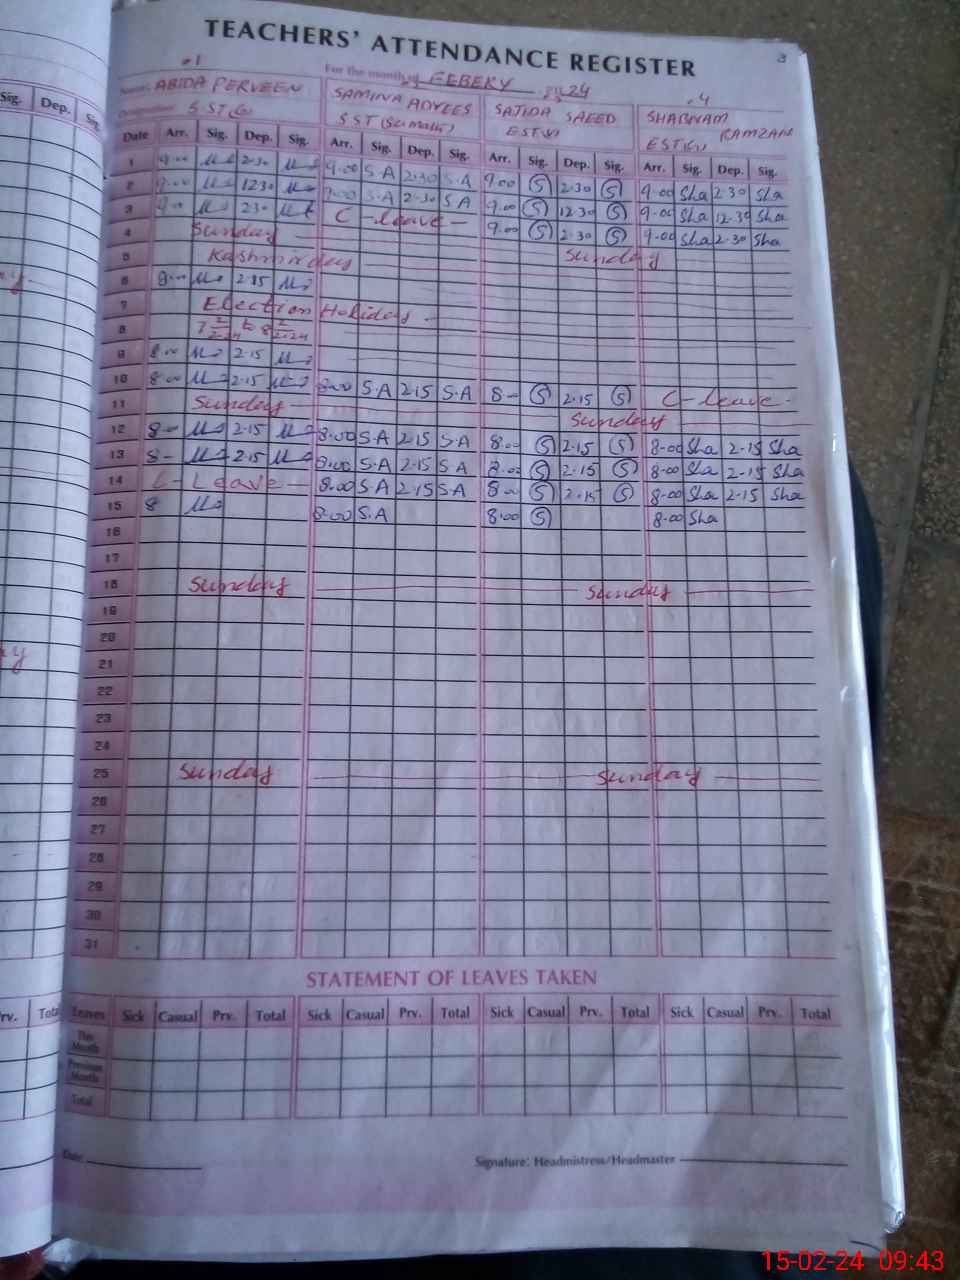 TEACHERS' ATTENDANCE REGISTER 3
For the month of FEBERY 24
Name: ABIDA PERVEEN SAMINA SAJIDA SAEED .4 SHABNAM RAMZAN
S.ST(G) SST (Sci math) EST(V) EST(G)
Sig. Dep. Sig.
Date Arr. Sig. Dep. Sig. Arr. Sig. Dep. Sig. Arr. Sig. Dep. Sig. Arr. Sig. Dep. Sig.
1 9.00 2.30 9.00 S.A 2.30 S.A 9.00 (S) 2.30 (S) 9.00 Sha 2.30 Sha
2 9.00 12.30 9.00 S.A 2.30 S.A 9.00 (S) 12.30 (S) 9.00 Sha 12.30 Sha
3 9.00 2.30 C-leave- 9.00 (S) 2.30 (S) 9.00 Sha 2.30 Sha
4 Sunday Sunday
5 Kashmir day
6 8.00 2.15
7 Election Holiday
8 7 2/2-24 to 8 2/2-24
9 8.00 2.15
10 8.00 2.15 8.00 S.A 2.15 S.A 8- (S) 2.15 (S) C-leave-
11 Sunday Sunday
12 8- 2.15 8.00 S.A 2.15 S.A 8.00 (S) 2.15 (S) 8.00 Sha 2.15 Sha
13 8- 2.15 8.00 S.A 2.15 S.A 8.00 (S) 2.15 (S) 8.00 Sha 2.15 Sha
14 C-Leave 8.00 S.A 2.15 S.A 8.00 (S) 2.15 (S) 8.00 Sha 2.15 Sha
15 8 8.00 S.A 8.00 (S) 8.00 Sha
16
17
18 Sunday Sunday
19
20
21
22
23
24
25 Sunday Sunday
26
27
28
29
30
31
STATEMENT OF LEAVES TAKEN
Prv. Total
Leaves Sick Casual Prv. Total Sick Casual Prv. Total Sick Casual Prv. Total Sick Casual Prv. Total
This Month
Previous Month
Total
Date
Signature: Headmistress/Headmaster
15-02-24 09:43